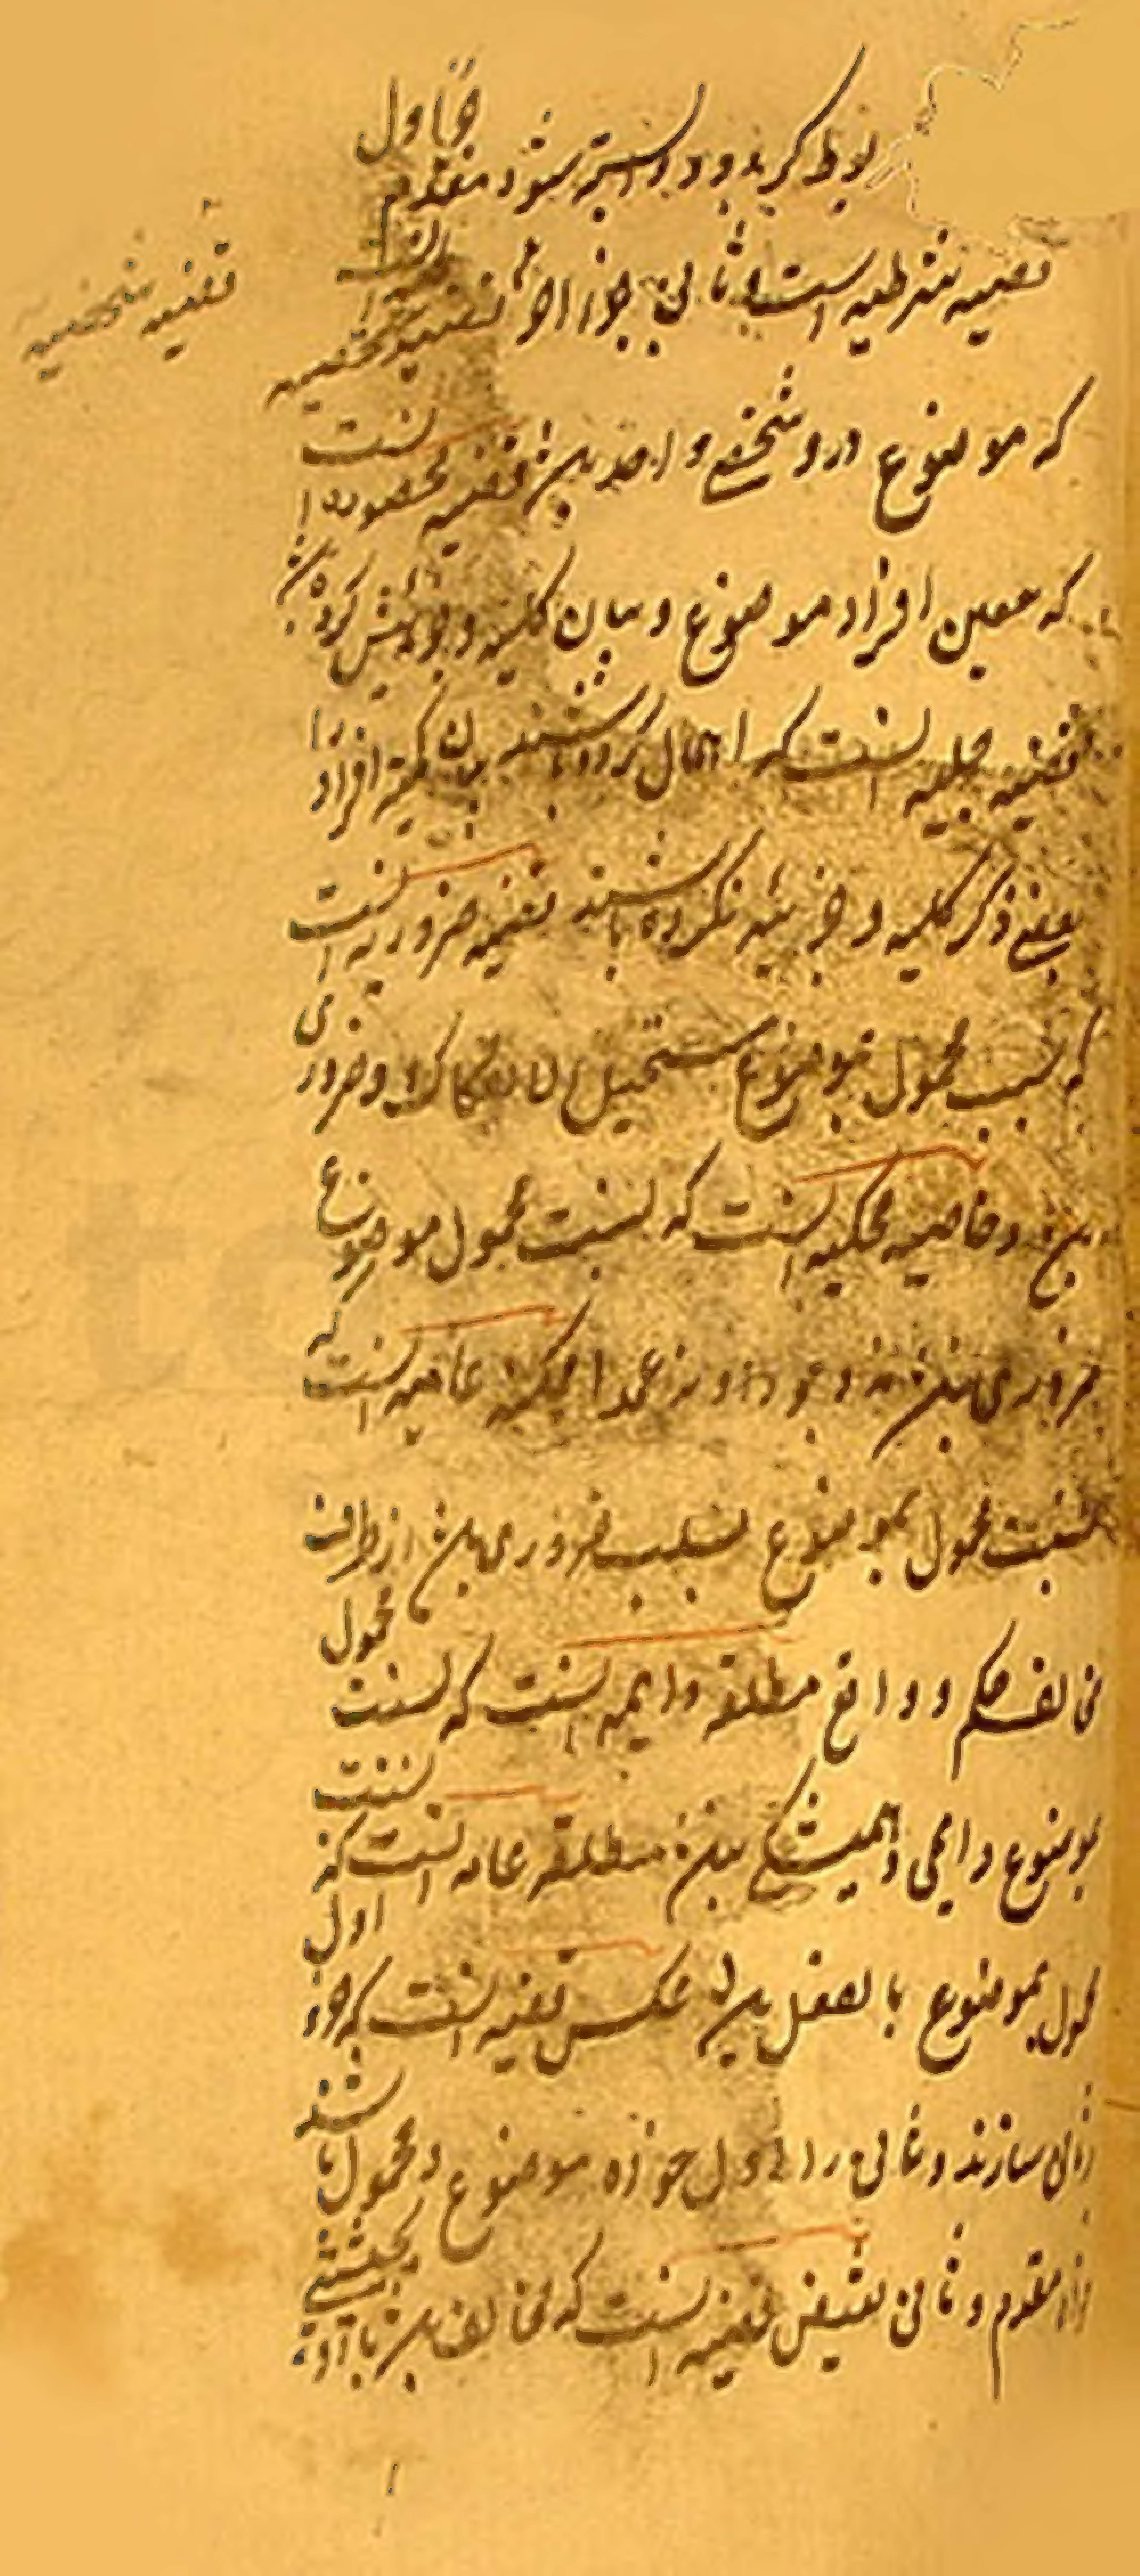 بوط کر بدو و دو استه شود مقدم جزء اول
قضیه شرطیه است و تالی جزء آخر قضیه شخصیه آن است
قضیه شخصیه
که موضوع درو شخصی واحد بود قضیه محصوره است
که معین افراد موضوع و بیان کلیه و جزئیش کرده
قضیه مهمله است که اهمال کرده باشند بیان کمیت افراد را
یعنی ذکر کلیه و جزئیه نکرده باشند قضیه ضروریه است
که نسبت محمول بموضوع مستحیل الانفکاک و ضروری
بود خاصیه ممکنه است که نسبت محمول موضوع
ضروری نبود نه وجودا و نه عدما ممکنه عامه است که
نسبت محمول بموضوع بسلب ضروری بود از طرف
مخالف حکم و واقع مطلقه دایمه است که نسبت محمول
بموضوع دایمی و همیشگی بود مطلقه عامه است که نسبت
محمول بموضوع بالفعل بود عکس قضیه است که جزء اول
را ثانی سازند و ثانی را اول خواه موضوع و محمول باشند
خواه مقدم و تالی نقیض قضیه است که مخالف بود با او بحیثیتی